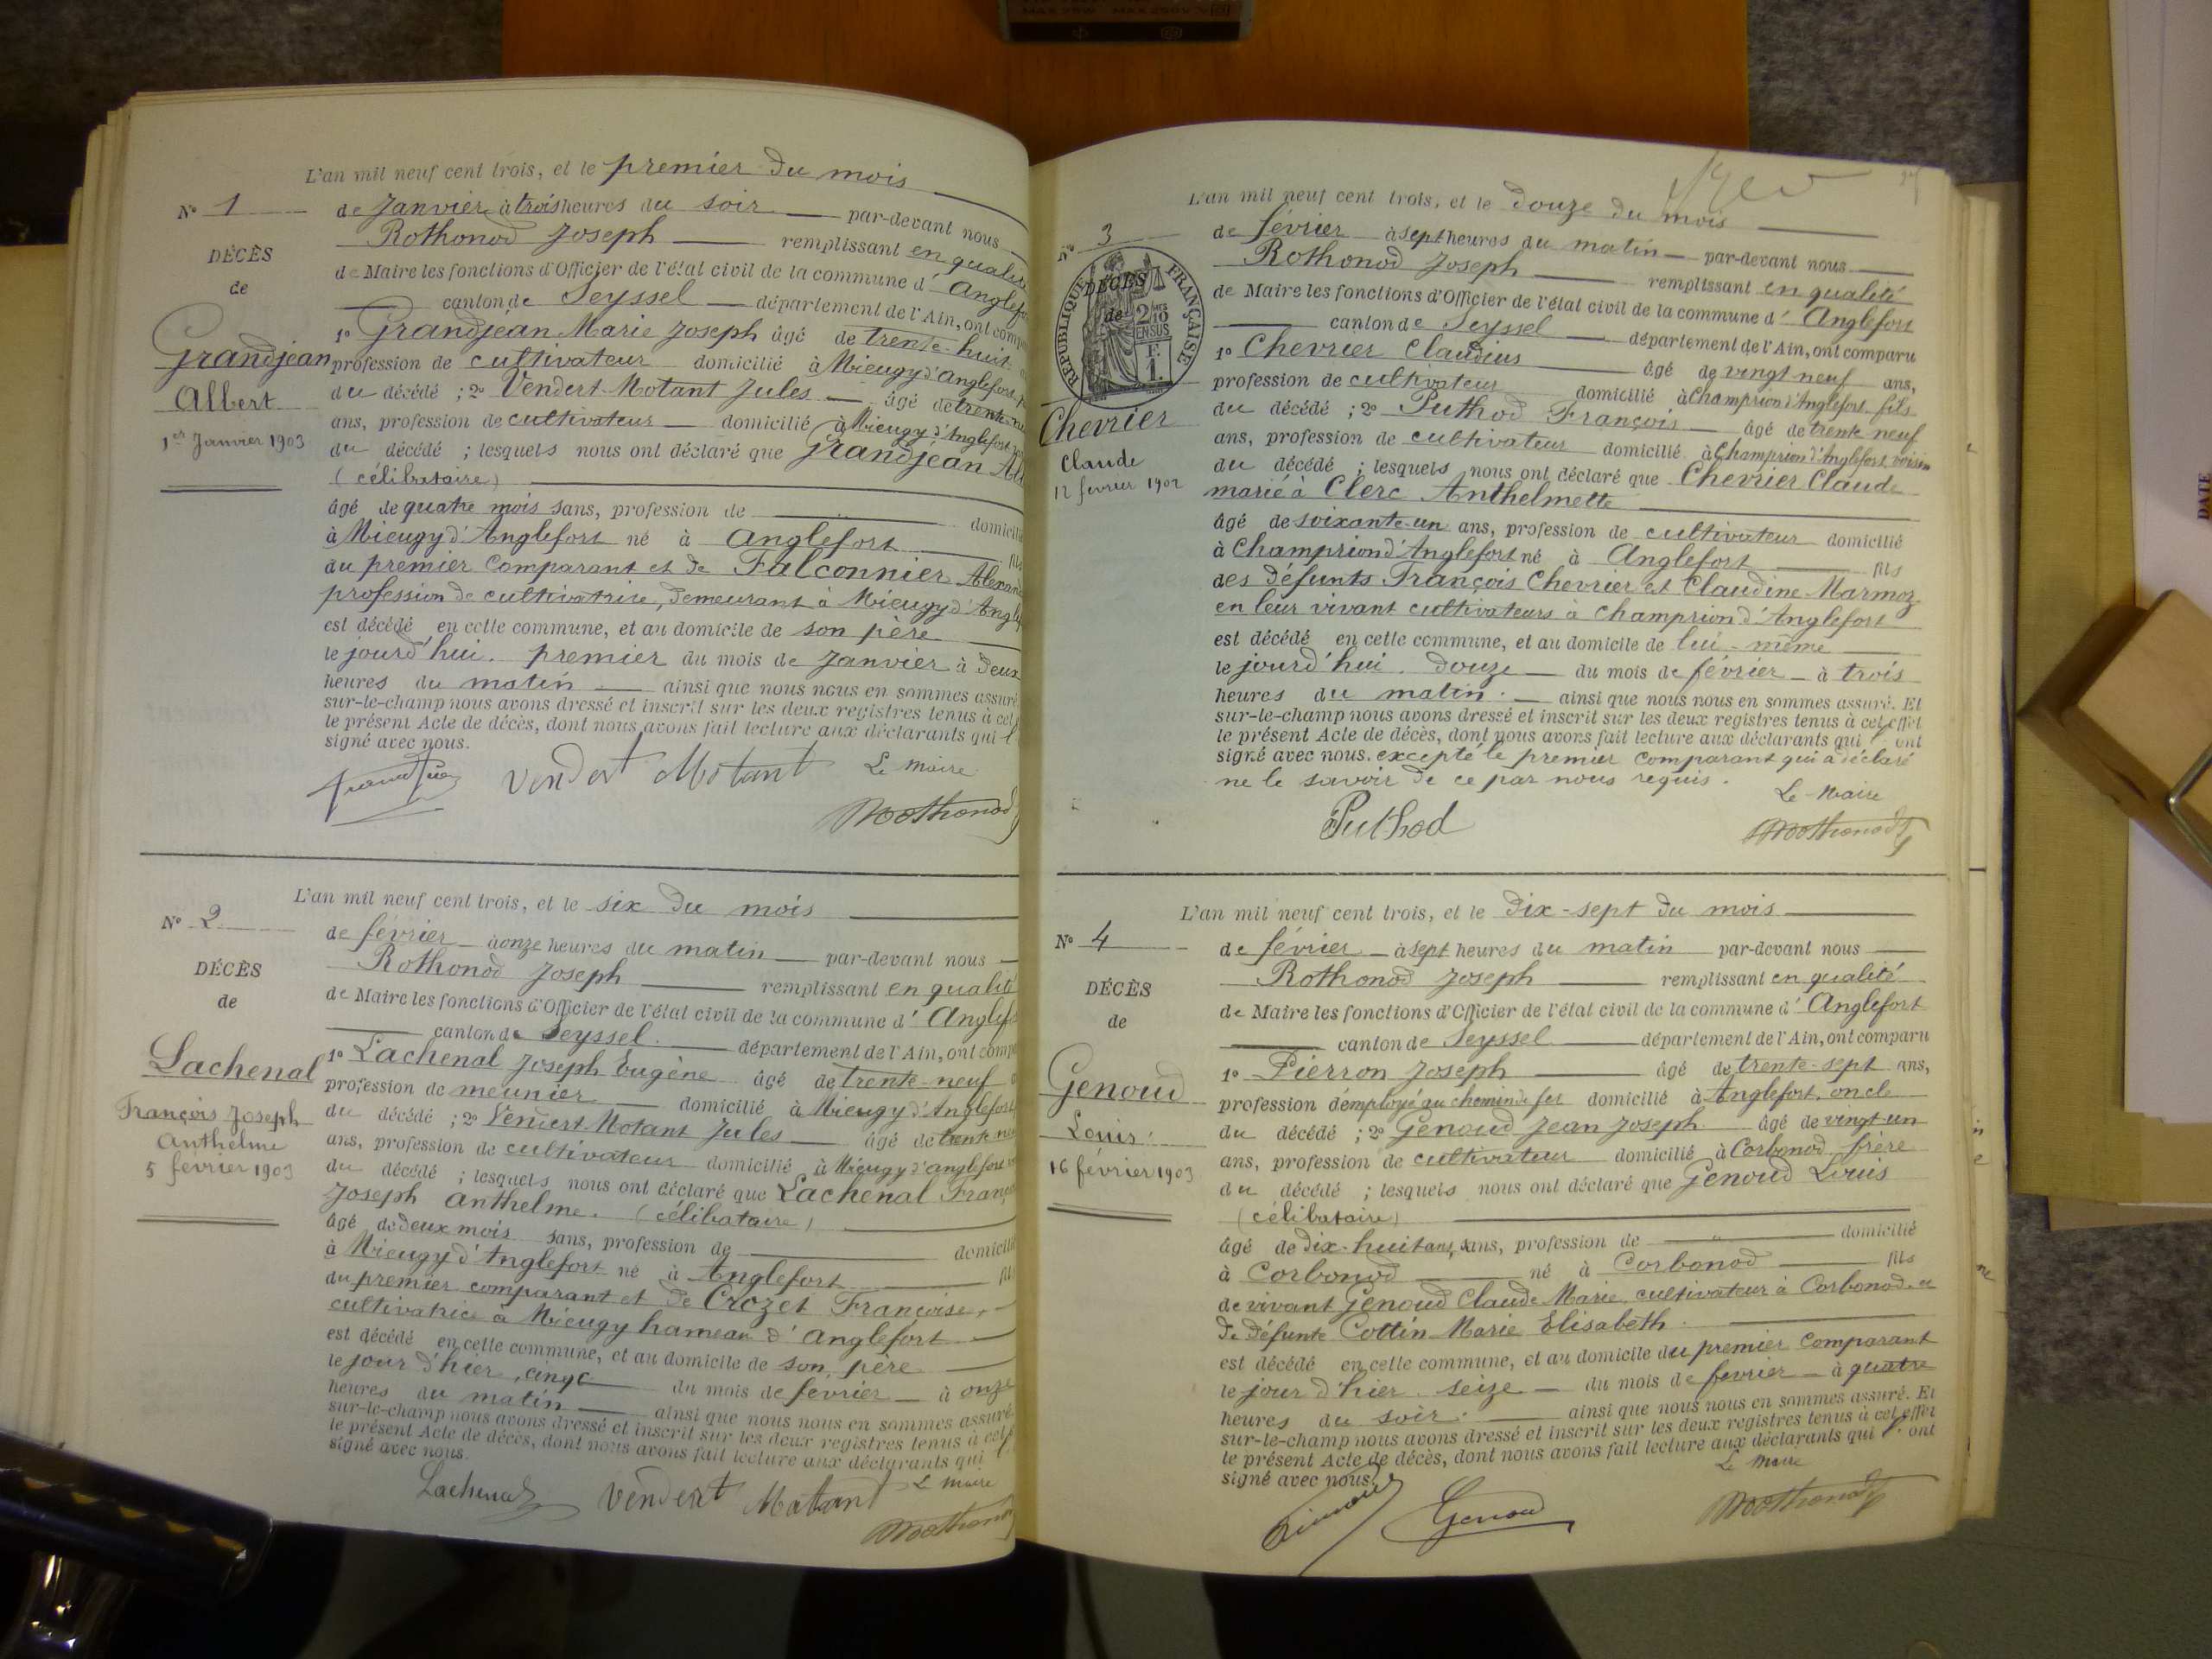 L'an mil neuf cent trois, et le premier du mois
N° 1
de Janvier à trois heures du soir par-devant nous
Rothonod Joseph remplissant en qualité
DÉCÈS
de Maire les fonctions d'Officier de l'état civil de la commune d'
de
canton de Seyssel département de l'Ain, ont
1° Grandjean Marie Joseph âgé de trente-huit
Grandjean
profession de cultivateur domicilié à Mieugy d'Anglefort
Albert
du décédé ; 2° Vendert-Motant Jules âgé de
ans, profession de cultivateur domicilié à Mieugy d'Anglefort
1er Janvier 1903
du décédé ; lesquels nous ont déclaré que Grandjean
(célibataire)
âgé de quatre mois sans, profession de
à Mieugy d'Anglefort né à Anglefort
du premier comparant et de Falconnier
profession de cultivatrice, demeurant à Mieugy d'
est décédé en cette commune, et au domicile de son père
le jourd'hui. premier du mois de Janvier à Deux
heures du matin ainsi que nous nous en sommes assuré
sur-le-champ nous avons dressé et inscrit sur les deux registres tenus à
le présent Acte de décès, dont nous avons fait lecture aux déclarants qui
signé avec nous.
Vendert Motant Le Maire
Rothonod
L'an mil neuf cent trois, et le six du mois
N° 2
de février à onze heures du matin par-devant nous
Rothonod Joseph remplissant en qualité
DÉCÈS
de Maire les fonctions d'Officier de l'état civil de la commune d'
de
canton de Seyssel département de l'Ain, ont
1° Lachenal Joseph Eugène âgé de trente-neuf
Lachenal
profession de meunier domicilié à Mieugy d'Anglefort
François Joseph
du décédé ; 2° Vendert Motant Jules âgé de
Anthelme
ans, profession de cultivateur domicilié à Mieugy d'anglefort
5 février 1903
du décédé ; lesquels nous ont déclaré que Lachenal
Joseph Anthelme. (célibataire)
âgé de deux mois sans, profession de
à Mieugy d'Anglefort né à Anglefort
du premier comparant et de Crozet Françoise,
cultivatrice à Mieugy hameau d'anglefort
est décédé en cette commune, et au domicile de son père
le jour d'hier, cinq du mois de février à onze
heures du matin ainsi que nous nous en sommes assuré
sur-le-champ nous avons dressé et inscrit sur les deux registres tenus à
le présent Acte de décès, dont nous avons fait lecture aux déclarants qui
signé avec nous.
Lachenal Vendert Motant Le Maire
Rothonod
L'an mil neuf cent trois, et le Douze du mois
N° 3
de février à sept heures du matin par-devant nous
Rothonod Joseph remplissant en qualité
RÉPUBLIQUE FRANÇAISE
DÉCÈS
de
2/10 EN SUS
F. 1.
de Maire les fonctions d'Officier de l'état civil de la commune d'Anglefort
canton de Seyssel département de l'Ain, ont comparu
1° Chevrier Claudius âgé de vingt neuf ans,
profession de cultivateur domicilié à Champrion d'Anglefort fils
du décédé ; 2° Puthod François âgé de trente neuf
Chevrier
ans, profession de cultivateur domicilié à Champrion d'Anglefort, voisin
Claude
du décédé ; lesquels nous ont déclaré que Chevrier Claude
12 février 1902
marié à Clerc Anthelmette
âgé de soixante-un ans, profession de cultivateur domicilié
à Champrion d'Anglefort né à Anglefort fils
des défunts François Chevrier et Claudine Marmoz
en leur vivant cultivateurs à Champrion d'Anglefort
est décédé en cette commune, et au domicile de lui-même
le jourd'hui. Douze du mois de février à trois
heures du matin. ainsi que nous nous en sommes assuré. Et
sur-le-champ nous avons dressé et inscrit sur les deux registres tenus à cet effet
le présent Acte de décès, dont nous avons fait lecture aux déclarants qui ont
signé avec nous. excepté le premier comparant qui a déclaré
ne le savoir de ce par nous requis.
Le Maire
Puthod Rothonod
L'an mil neuf cent trois, et le Dix-sept du mois
N° 4
de février à sept heures du matin par-devant nous
Rothonod Joseph remplissant en qualité
DÉCÈS
de Maire les fonctions d'Officier de l'état civil de la commune d'Anglefort
de
canton de Seyssel département de l'Ain, ont comparu
1° Pierron Joseph âgé de trente-sept ans,
Genoud
profession d'employé au chemin de fer domicilié à Anglefort, oncle
Louis
du décédé ; 2° Genoud Jean Joseph âgé de vingt-un
ans, profession de cultivateur domicilié à Corbonod frère
16 février 1903
du décédé ; lesquels nous ont déclaré que Genoud Louis
(célibataire)
âgé de Dix-huit ans, sans, profession de domicilié
à Corbonod né à Corbonod fils
de vivant Genoud Claude Marie, cultivateur à Corbonod et
de défunte Cottin Marie Elisabeth.
est décédé en cette commune, et au domicile du premier comparant
le jour d'hier. seize du mois de février à quatre
heures du soir. ainsi que nous nous en sommes assuré. Et
sur-le-champ nous avons dressé et inscrit sur les deux registres tenus à cet effet
le présent Acte de décès, dont nous avons fait lecture aux déclarants qui ont
signé avec nous.
Le Maire
Genoud Rothonod
DATE